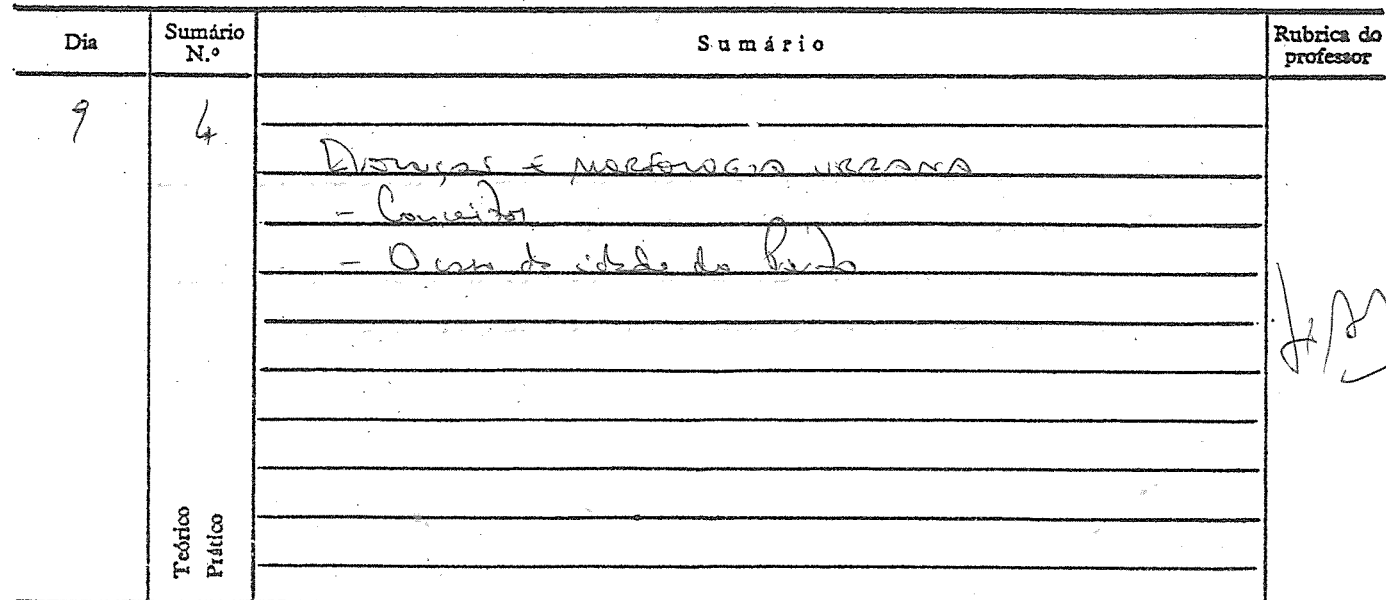 Dia
Sumário N.º
Sumário
Rubrica do professor
9
4
EVOLUÇÃO E MORFOLOGIA URBANA
- Conceitos
- O caso da cidade do Porto
Teórico
Prático